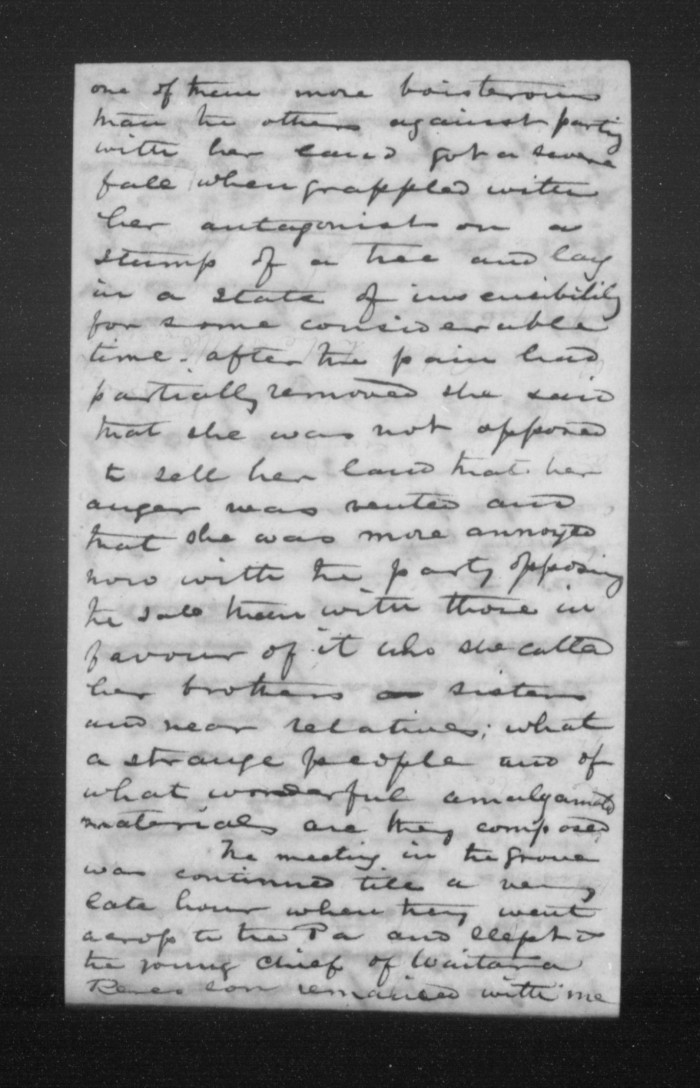 one of them more boisterous
than the others against parting
with her land got a severe
fall when grappled with
her antagonist on a
stump of a tree and lay
in a state of insensibility
for some considerable
time. after the pain had
partially removed she said
that she was not opposed
to sell her land that her
anger was vented and
that she was more annoyed
now with the party opposing
the sale than with those in
favour of it who she called
her brothers sisters
and near relatives; what
a strange people and of
what wonderful amalgamated
materials are they composed
The meeting in the grove
was continued till a very
late hour when they went
across to the Pa and slept &
the young chief of Waitara
son remained with me